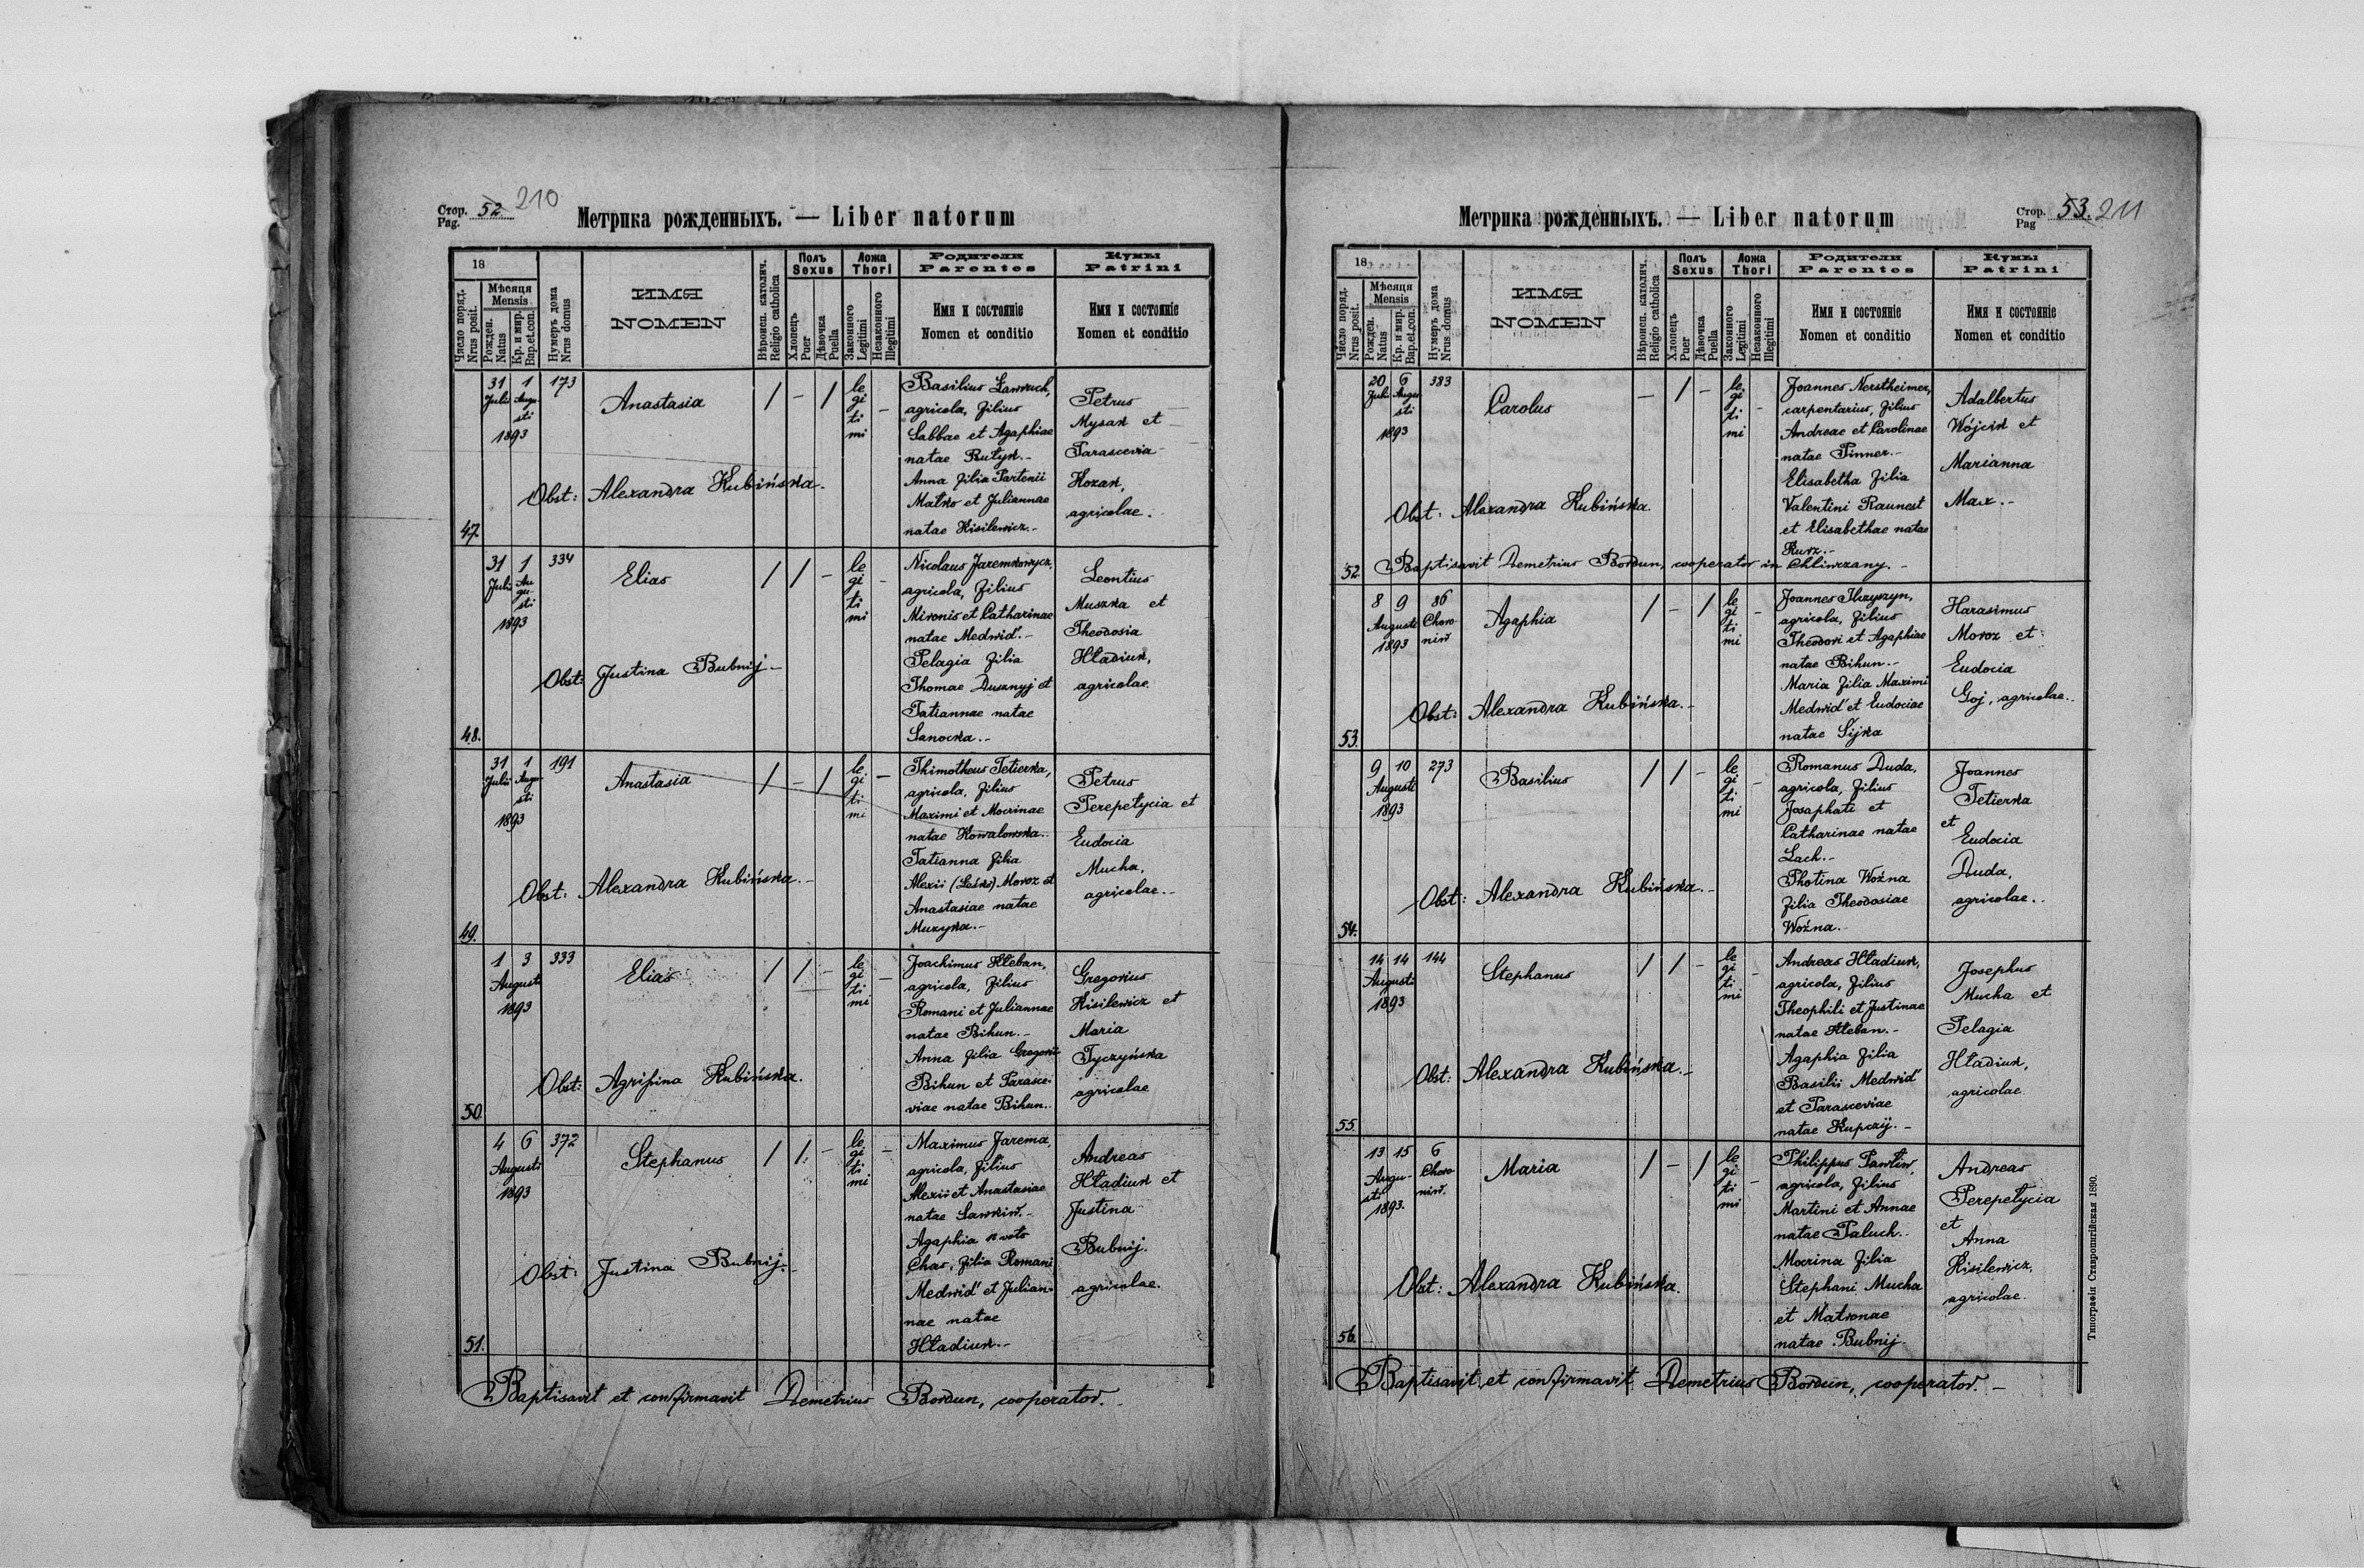 Стор. 52. 210
Pag.
Метрика рожденныхъ. — Liber natorum
18
Число поряд.
Nrus posit.
Мѣсяця
Mensis
Рожден.
Natus
Кр. и мир.
Bap.et.con.
Нумеръ дома
Nrus domus
ИМЯ
NOMEN
Вѣроисп. католич.
Religio catholica
Полъ
Sexus
Хлопець
Puer
Дѣвочка
Puella
Ложа
Thori
Законного
Legitimi
Незаконного
Illegitimi
Родители
Parentes
Имя и состоянiе
Nomen et conditio
Кумы
Patrini
Имя и состоянiе
Nomen et conditio
47.
31 1 173
Julii Augu-
sti
1893
Anastasia
/ - / le
gi
ti
mi
-
Basilius Ławruch,
agricola, filius
Sabbae et Agaphiae
natae Rutyk.-
Anna filia Partenii
Małko et Juliannae
natae Kisilewicz.-
Petrus
Mysak et
Parascevia
Kozak,
agricolae.
Obst: Alexandra Kubińska.
48.
31 1 334
Julii Au
gu-
sti
1893
Elias
/ / - le
gi
ti
mi
-
Nicolaus Jaremkowycz,
agricola, filius
Mironis et Catharinae
natae Medwid'.-
Pelagia filia
Thomae Dusznyj et
Tatiannae natae
Sanocka.-
Leontius
Muszka et
Theodosia
Hładiuk,
agricolae.
Obst: Justina Bubnij-
49.
31 1 191
Julii Augu-
sti
1893
Anastasia
/ - / le
gi
ti
mi
-
Thimotheus Tetierka,
agricola, filius
Maximi et Mocrinae
natae Kowalowska.-
Tatianna filia
Alexii (Leśko) Moroz et
Anastasiae natae
Muzyka.-
Petrus
Perepetycia et
Eudocia
Mucha,
agricolae.-
Obst: Alexandra Kubińska.-
50.
1 3 333
Augusti
1893
Elias
/ / - le
gi
ti
mi
-
Joachimus Hłeban,
agricola, filius
Romani et Juliannae
natae Bihun.-
Anna filia Gregorii
Bihun et Parasce-
viae natae Bihun.
Gregorius
Kisilewicz et
Maria
Tyczyńska
agricolae
Obst: Agripina Kubińska.
51.
4 6 372
Augusti
1893
Stephanus
/ / - le
gi
ti
mi
-
Maximus Jarema,
agricola, filius
Alexii et Anastasiae
natae Sawkiw.-
Agaphia voto
Chas, filia Romani
Medwid' et Julian-
nae natae
Hładiuk.-
Andreas
Hładiuk et
Justina
Bubnij.
agricolae.
Obst: Justina Bubnij.-
Baptisavit et confirmavit Demetrius Bordun, cooperator.-
Метрика рожденныхъ. — Liber natorum
Стор. 53. 211
Pag
18
Число поряд.
Nrus posit.
Мѣсяця
Mensis
Рожден.
Natus
Кр. и мир.
Bap.et.con.
Нумеръ дома
Nrus domus
ИМЯ
NOMEN
Вѣроисп. католич.
Religio catholica
Полъ
Sexus
Хлопець
Puer
Дѣвочка
Puella
Ложа
Thori
Законного
Legitimi
Незаконного
Illegitimi
Родители
Parentes
Имя и состоянiе
Nomen et conditio
Кумы
Patrini
Имя и состоянiе
Nomen et conditio
52.
20 6 383
Julii Augu
sti
1893
Carolus
- / - le
gi
ti
mi
-
Joannes Nerstheimer,
carpentarius, filius
Andreae et Carolinae
natae Pinner.-
Elisabetha filia
Valentini Raunest
et Elisabethae natae
Kurz.-
Adalbertus
Wójcik et
Marianna
Max.-
Obst: Alexandra Kubińska.
Baptisavit Demetrius Bordun, cooperator in Chliwczany.-
53.
8 9 86
Augusti Choro-
1893 niw
Agaphia
/ - / le
gi
ti
mi
-
Joannes Ilczyszyn,
agricola, filius
Theodori et Agaphiae
natae Bihun.-
Maria filia Maximi
Medwid' et Eudociae
natae Sijka
Harasimus
Moroz et
Eudocia
Goj, agricolae..
Obst: Alexandra Kubińska.-
54.
9 10 273
Augusti
1893
Basilius
/ / - le
gi
ti
mi
-
Romanus Duda,
agricola, filius
Josaphati et
Catharinae natae
Lach.-
Photina Woźna
filia Theodosiae
Woźna.-
Joannes
Tetierka
et
Eudocia
Duda,
agricolae..
Obst: Alexandra Kubińska.-
55.
14 14 144
Augusti
1893
Stephanus
/ / - le
gi
ti
mi
-
Andreas Hładiuk,
agricola, filius
Theophili et Justinae
natae Hłeban.-
Agaphia filia
Basilii Medwid'
et Parasceviae
natae Kupczij.-
Josephus
Mucha et
Pelagia
Hładiuk,
agricolae.
Obst: Alexandra Kubińska.-
56.
13 15 6
Augu- Choro-
sti niw.
1893.
Maria
/ - / le
gi
ti
mi
-
Philippus Pawliw,
agricola, filius
Martini et Annae
natae Paluch..
Mocrina filia
Stephani Mucha
et Matronae
natae Bubnij.
Andreas
Perepetycia
et
Anna
Kisilewicz,
agricolae.
Obst: Alexandra Kubińska.
Baptisavit et confirmavit Demetrius Bordun, cooperator.-
Типографія Ставропигійская 1890.